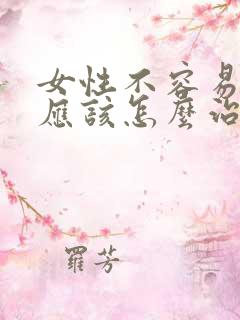 女性不容易
应该怎麼治
羅芳